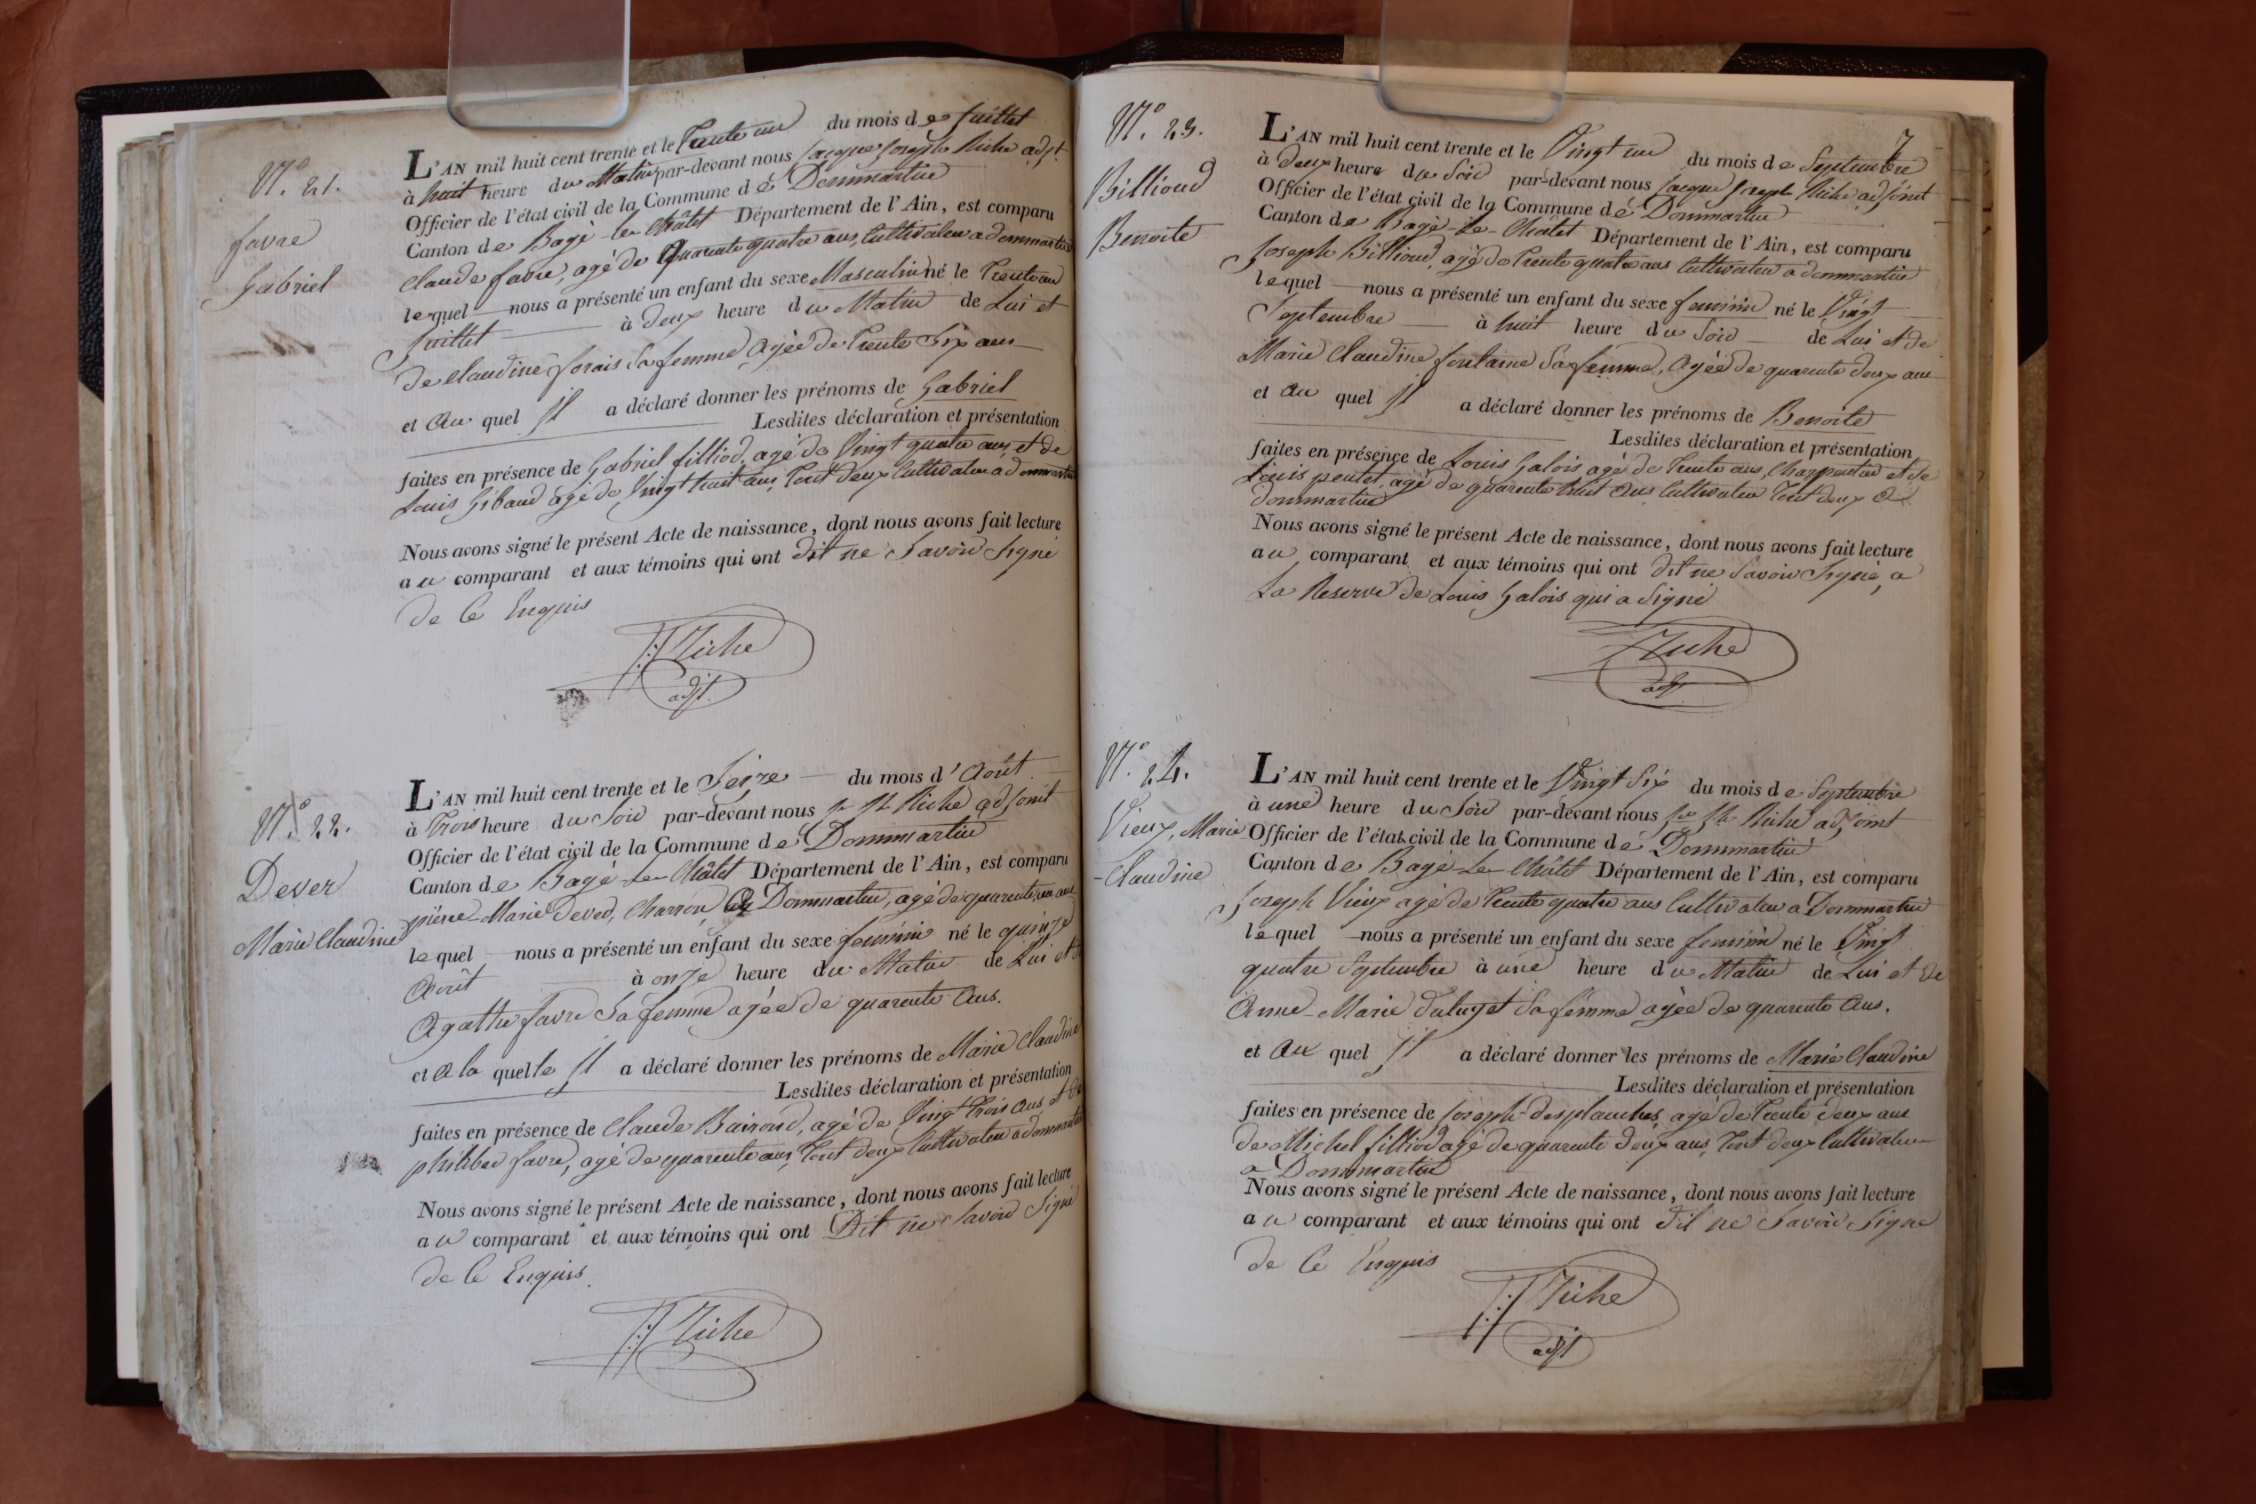 N.° 21.
favre
Gabriel
L'AN mil huit cent trente et le Trente un du mois de Juillet
à huit heure du Matin par-devant nous Jacque Joseph Riche adjt.
Officier de l'état civil de la Commune de Dommartin
Canton de Bagé-le-Châtel Département de l'Ain, est comparu
Claude favre, agé de Quarante quatre ans, Cultivateur a dommartin
lequel nous a présenté un enfant du sexe Masculin né le Trente un
Juillet à deux heure du Matin de Lui et
de Claudine forais Sa femme, agée de Trente Six ans
et Au quel Il a déclaré donner les prénoms de Gabriel
Lesdites déclaration et présentation
faites en présence de Gabriel filliod, agé de Vingt quatre ans, et de
Louis Gibaud agé de Vingt huit ans, Tout deux Cultivateur a dommartin
Nous avons signé le présent Acte de naissance, dont nous avons fait lecture
au comparant et aux témoins qui ont dit ne Savoir Signé
de Ce Enquis
Riche
adjt.
N.° 22.
Dever
Marie Claudine
L'AN mil huit cent trente et le Seize du mois d'Août
à Trois heure du Soir par-devant nous Riche adjoint
Officier de l'état civil de la Commune de Dommartin
Canton de Bagé-Le-Châtel Département de l'Ain, est comparu
pierre-Marie Dever, Charron a Dommartin, agé de quarente un ans
lequel nous a présenté un enfant du sexe feminin né le quinze
Août à onze heure du Matin de Lui et de
Agathe favre Sa femme agée de quarente Ans.
et a la quelle Il a déclaré donner les prénoms de Marie Claudine
Lesdites déclaration et présentation
faites en présence de Claude Bairoud, agé de Vingt Trois Ans et de
philiber favre, agé de quarente ans, Tout deux Cultivateur a dommartin
Nous avons signé le présent Acte de naissance, dont nous avons fait lecture
au comparant et aux témoins qui ont Dit ne Savoir Signé
de Ce Enquis.
Riche
7
N.° 23.
Billioud
Benoite
L'AN mil huit cent trente et le Vingt un du mois de Septembre
à deux heure du Soir par-devant nous Jacque Joseph Riche adjoint
Officier de l'état civil de la Commune de Dommartin
Canton de Bagé-Le-Châtel Département de l'Ain, est comparu
Joseph Billioud, agé de Trente quatre ans Cultivateur a dommartin
lequel nous a présenté un enfant du sexe feminin né le Vingt
Septembre à huit heure du Soir de Lui et de
Marie Claudine fontaine Sa femme, Agée de quarente deux ans
et au quel Il a déclaré donner les prénoms de Benoite
Lesdites déclaration et présentation
faites en présence de Louis Galois agé de Trente ans, Charpentier et de
Louis pentet, agé de quarente huit Ans Cultivateur Tout deux a
dommartin
Nous avons signé le présent Acte de naissance, dont nous avons fait lecture
au comparant et aux témoins qui ont dit ne Savoir Signé, a
La Reserve de Louis Galois qui a Signé
Riche
adjt
N.° 24.
Vieux, Marie
-Claudine
L'AN mil huit cent trente et le Vingt Six du mois de Septembre
à une heure du Soir par-devant nous Riche adjoint
Officier de l'état civil de la Commune de Dommartin
Canton de Bagé-Le-Châtel Département de l'Ain, est comparu
Joseph Vieux agé de Trente quatre ans Cultivateur a Dommartin
lequel nous a présenté un enfant du sexe feminin né le Vingt
quatre Septembre à une heure du Matin de Lui et de
Anne-Marie Duluget Sa femme agée de quarente Ans.
et au quel Il a déclaré donner les prénoms de Marie Claudine
Lesdites déclaration et présentation
faites en présence de Joseph desplanches, agé de Trente deux ans
de Michel filliod agé de quarente deux ans, Tout deux Cultivateur
a Dommartin
Nous avons signé le présent Acte de naissance, dont nous avons fait lecture
au comparant et aux témoins qui ont dit ne Savoir Signé
de Ce Enquis
Riche
adjt